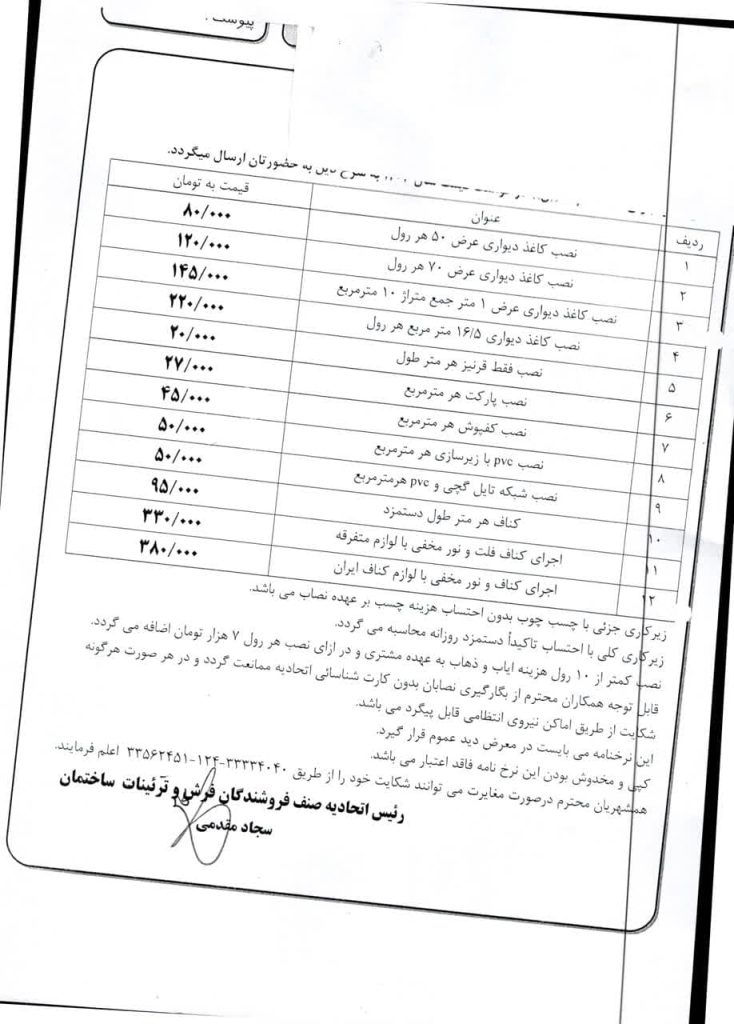 پیوست :
به حضورتان ارسال میگردد.
ردیف عنوان قیمت به تومان
۱ نصب کاغذ دیواری عرض ۵۰ هر رول ۸۰/۰۰۰
۲ نصب کاغذ دیواری عرض ۷۰ هر رول ۱۲۰/۰۰۰
۳ نصب کاغذ دیواری عرض ۱ متر جمع متراژ ۱۰ مترمربع ۱۴۵/۰۰۰
۴ نصب کاغذ دیواری ۱۶/۵ متر مربع هر رول ۲۲۰/۰۰۰
۵ نصب فقط قرنیز هر متر طول ۲۰/۰۰۰
۶ نصب پارکت هر مترمربع ۲۷/۰۰۰
۷ نصب کفپوش هر مترمربع ۴۵/۰۰۰
۸ نصب pvc با زیرسازی هر مترمربع ۵۰/۰۰۰
۹ نصب شبکه تایل گچی و pvc هرمترمربع ۵۰/۰۰۰
۱۰ کناف هر متر طول دستمزد ۹۵/۰۰۰
۱۱ اجرای کناف فلت و نور مخفی با لوازم متفرقه ۳۳۰/۰۰۰
۱۲ اجرای کناف و نور مخفی با لوازم کناف ایران ۳۸۰/۰۰۰
زیرکاری جزئی با چسب چوب بدون احتساب هزینه چسب بر عهده نصاب می باشد.
زیرکاری کلی با احتساب تاکیداً دستمزد روزانه محاسبه می گردد.
نصب کمتر از ۱۰ رول هزینه ایاب و ذهاب به عهده مشتری و در ازای نصب هر رول ۷ هزار تومان اضافه می گردد.
قابل توجه همکاران محترم از بگارگیری نصابان بدون کارت شناسائی اتحادیه ممانعت گردد و در هر صورت هرگونه
شکایت از طریق اماکن نیروی انتظامی قابل پیگرد می باشد.
این نرخنامه می بایست در معرض دید عموم قرار گیرد.
کپی و مخدوش بودن این نرخ نامه فاقد اعتبار می باشد.
همشهریان محترم درصورت مغایرت می توانند شکایت خود را از طریق ۳۳۳۳۴۰۴۰-۱۲۴-۳۳۵۶۲۴۵۱ اعلم فرمایند.
رئیس اتحادیه صنف فروشندگان فرش و تزئینات ساختمان
سجاد مقدمی